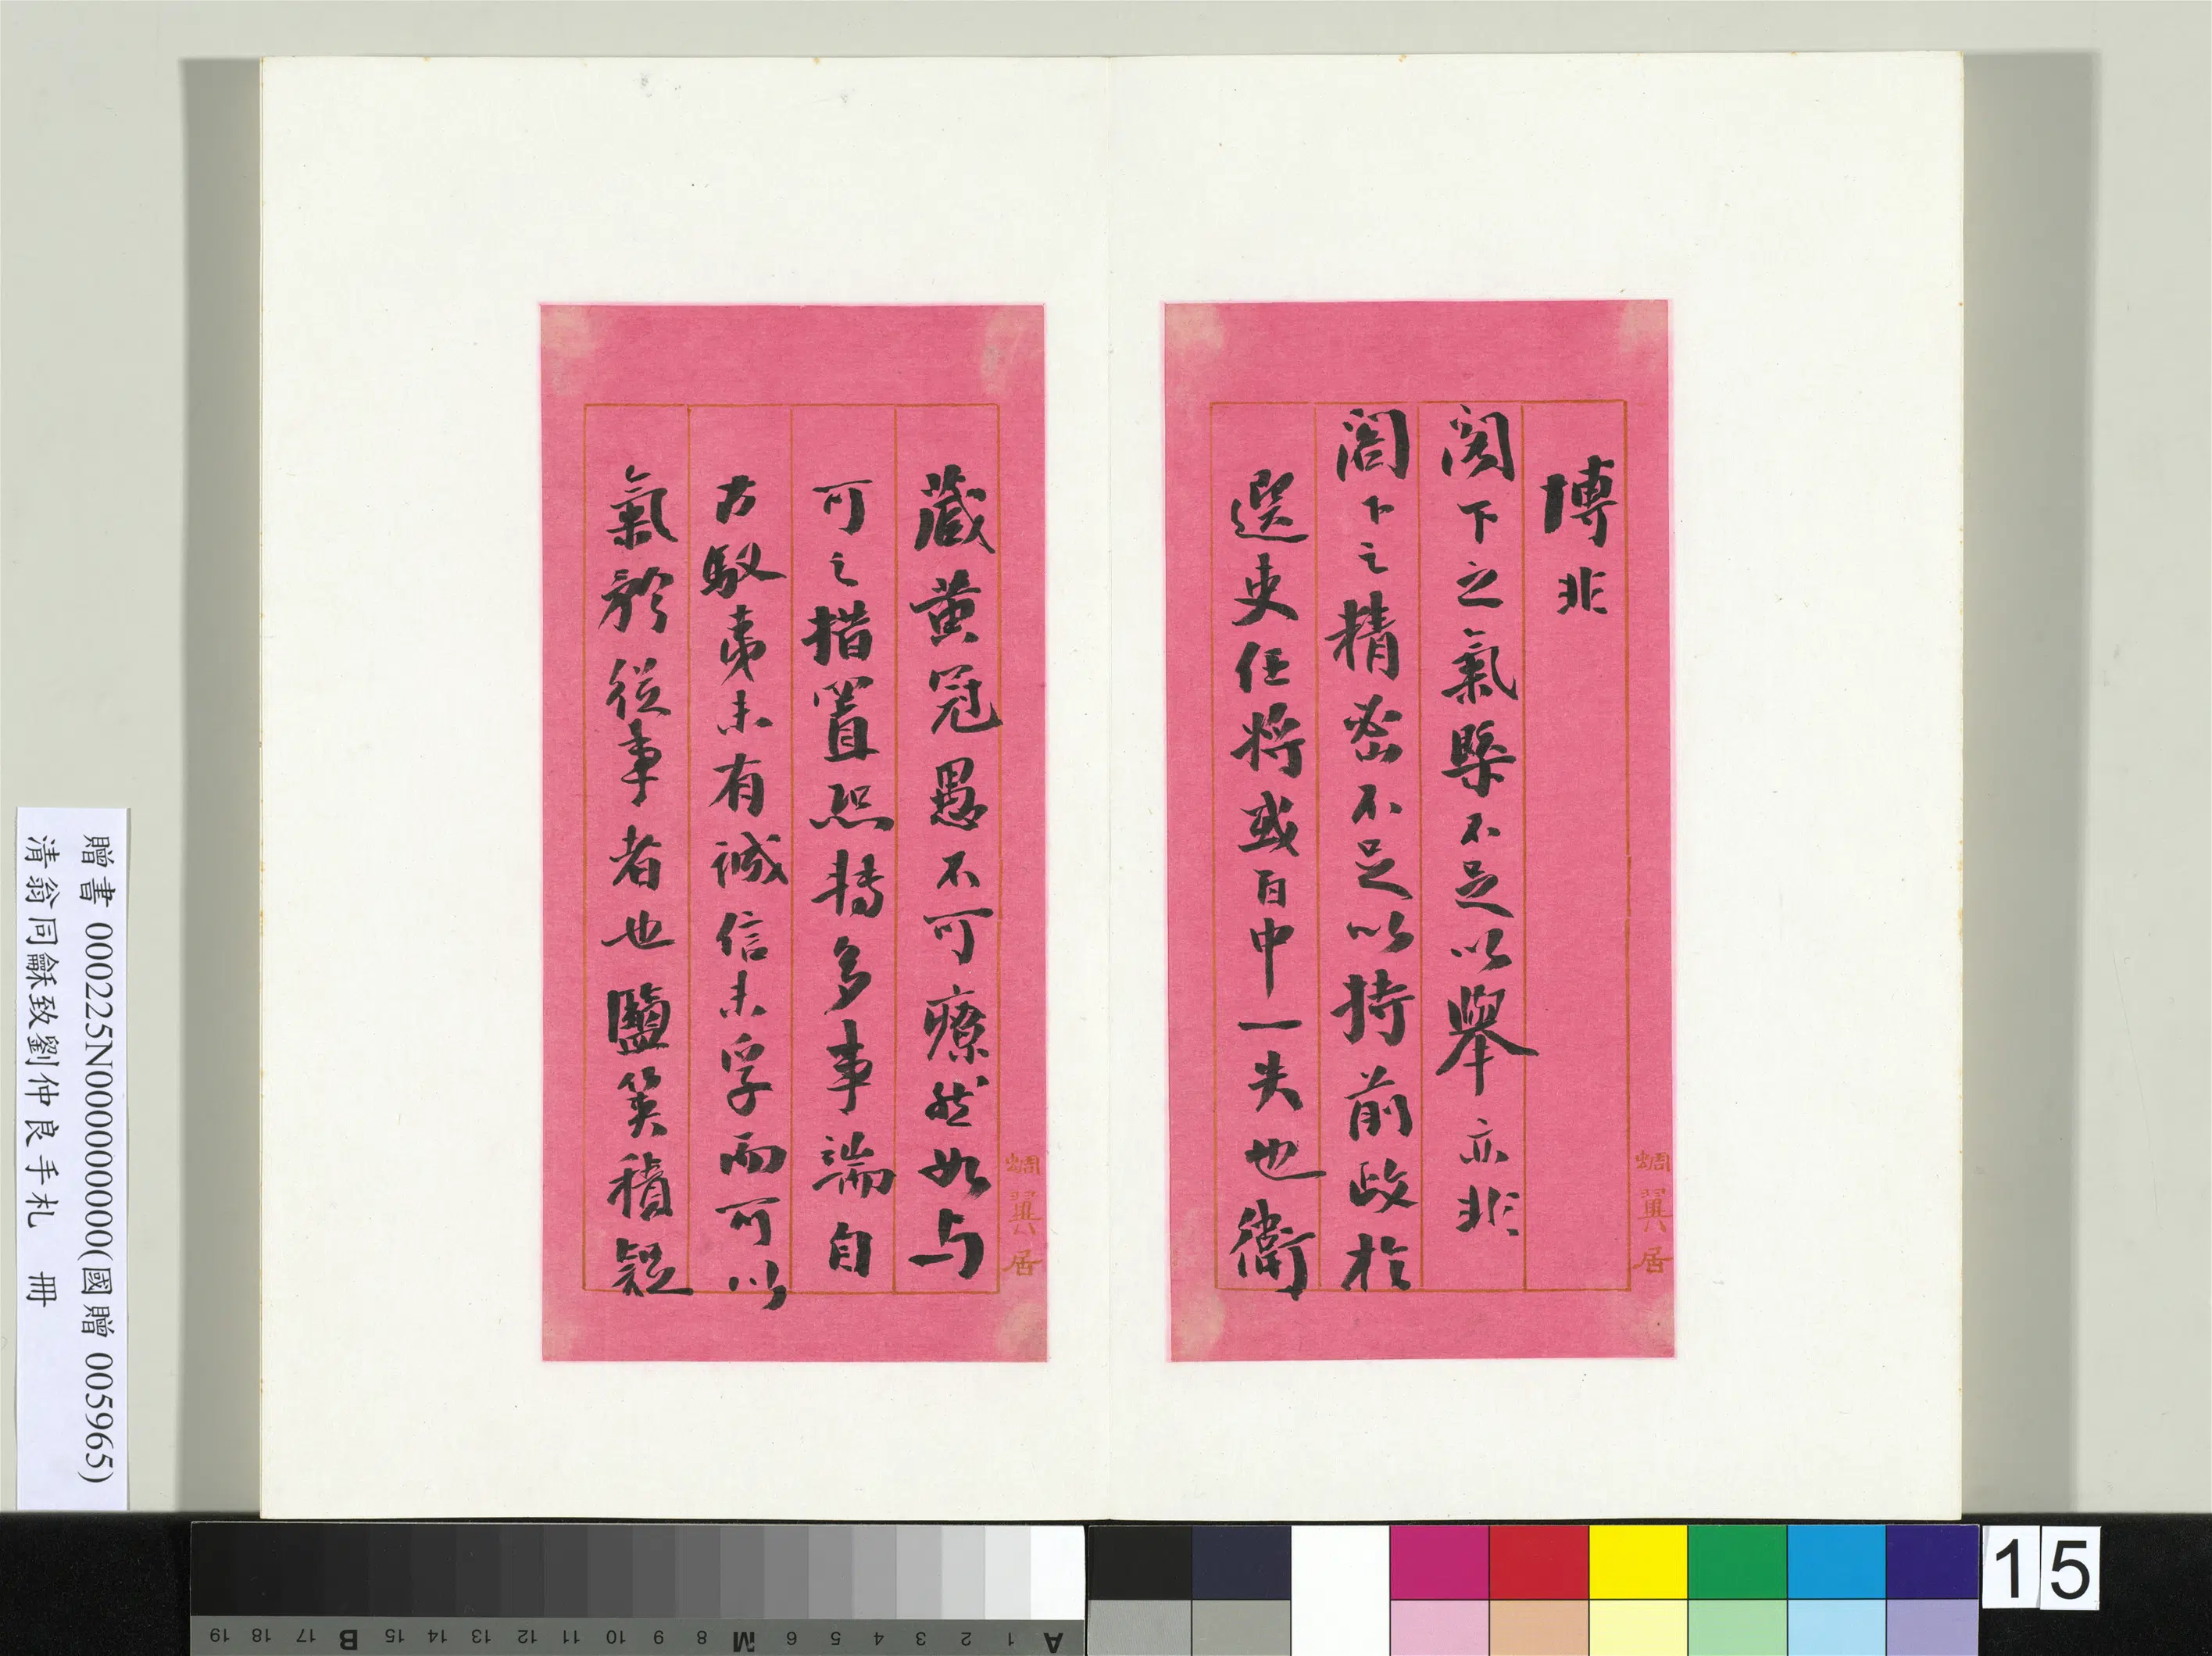 博非
閣下之氣槩不足以舉亦非
閣下之精密不足以持前政於
選吏任將或百中一失也衛
藏黄冠愚不可療然如与
可之措置恐轉多事端自
古馭夷未有誠信未孚而可以
氣矜從事者也鹽筴積疑
蜩翼居
蜩翼居
贈書 000225N000000000(國贈 005965)
清翁同龢致劉仲良手札 冊
15
A 1 2 3 4 5 6 M 8 9 10 11 12 13 14 15 B 17 18 19